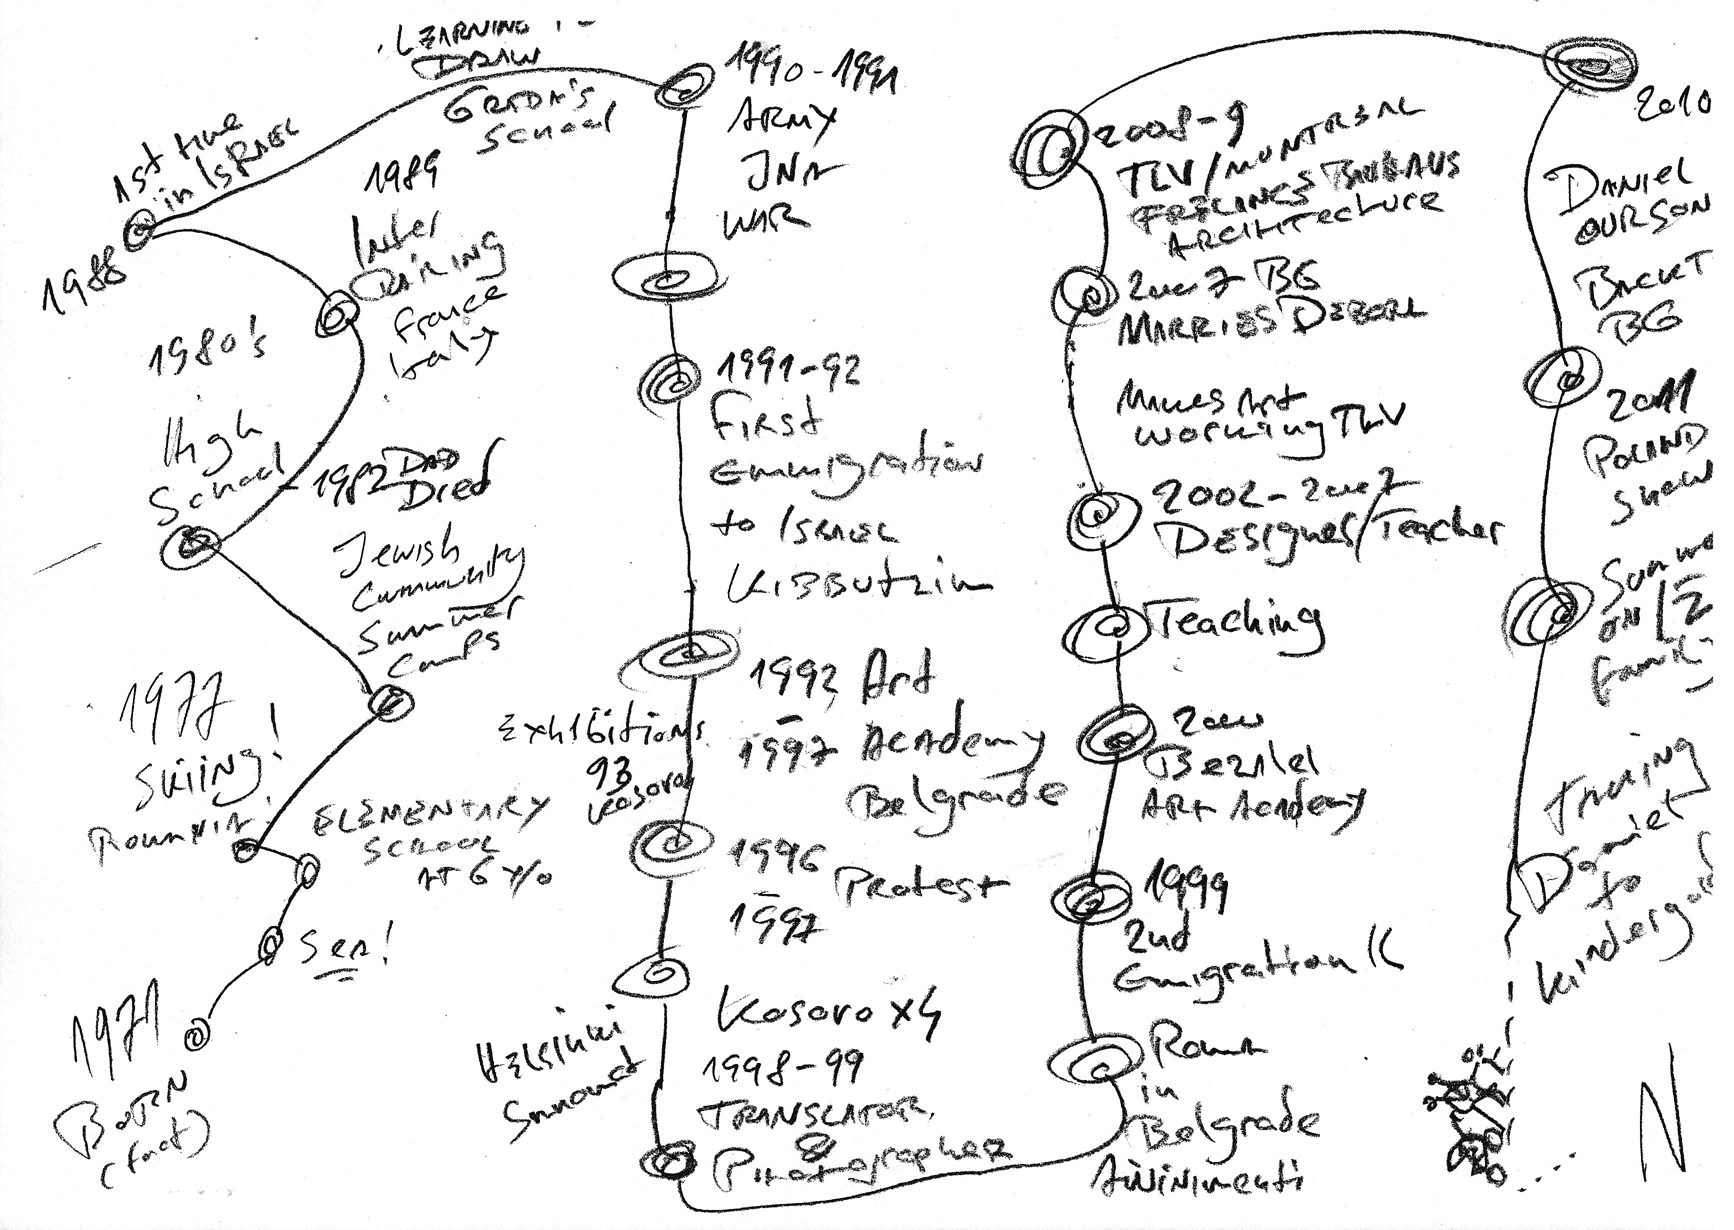 1971
BORN
(fact)
Sea!
ELEMENTARY
SCHOOL
AT 6 Y/O
1977
SKIING!
Jewish
Community
Summer
Camps
1982 DAD
Died
1980's
High
School
1989
Inter
RAILING
France
Italy
1988
1st time
in ISRAEL
LEARNING
DRAW
School
1990-1991
ARMY
JNA
WAR
1991-92
First
Emmigration
to ISRAEL
KIBBUTZIM
1992 Art
-
1997 ACADEMY
Belgrade
Exhibitions
93
Kosovo
1996
-
1997
Protest
Kosovo x4
Helsinki
1998-99
TRANSLATOR
&
Photographer
Roma
in
Belgrade
1999
2nd
Emigration
2000
Bezalel
ART Academy
Teaching
2002-2007
Designer/Teacher
Makes Art
working TLV
2007 BG
MARRIES
2008-9
TLV/MONTREAL
FREELANCES BAUHAUS
ARCHITECTURE
2010
DANIEL
OURSON
BG
2011
POLAND
Show
on
family
Daniel
to
N